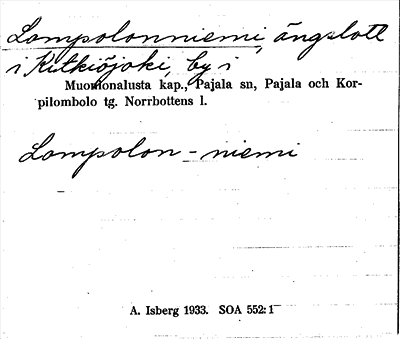 Lompolonniemi, ängslott
i Kitkiöjoki, by i
Muonionalusta kap., Pajala sn, Pajala och Kor-
pilombolo tg. Norrbottens l.
Lompolon - niemi
A. Isberg 1933. SOA 552:1